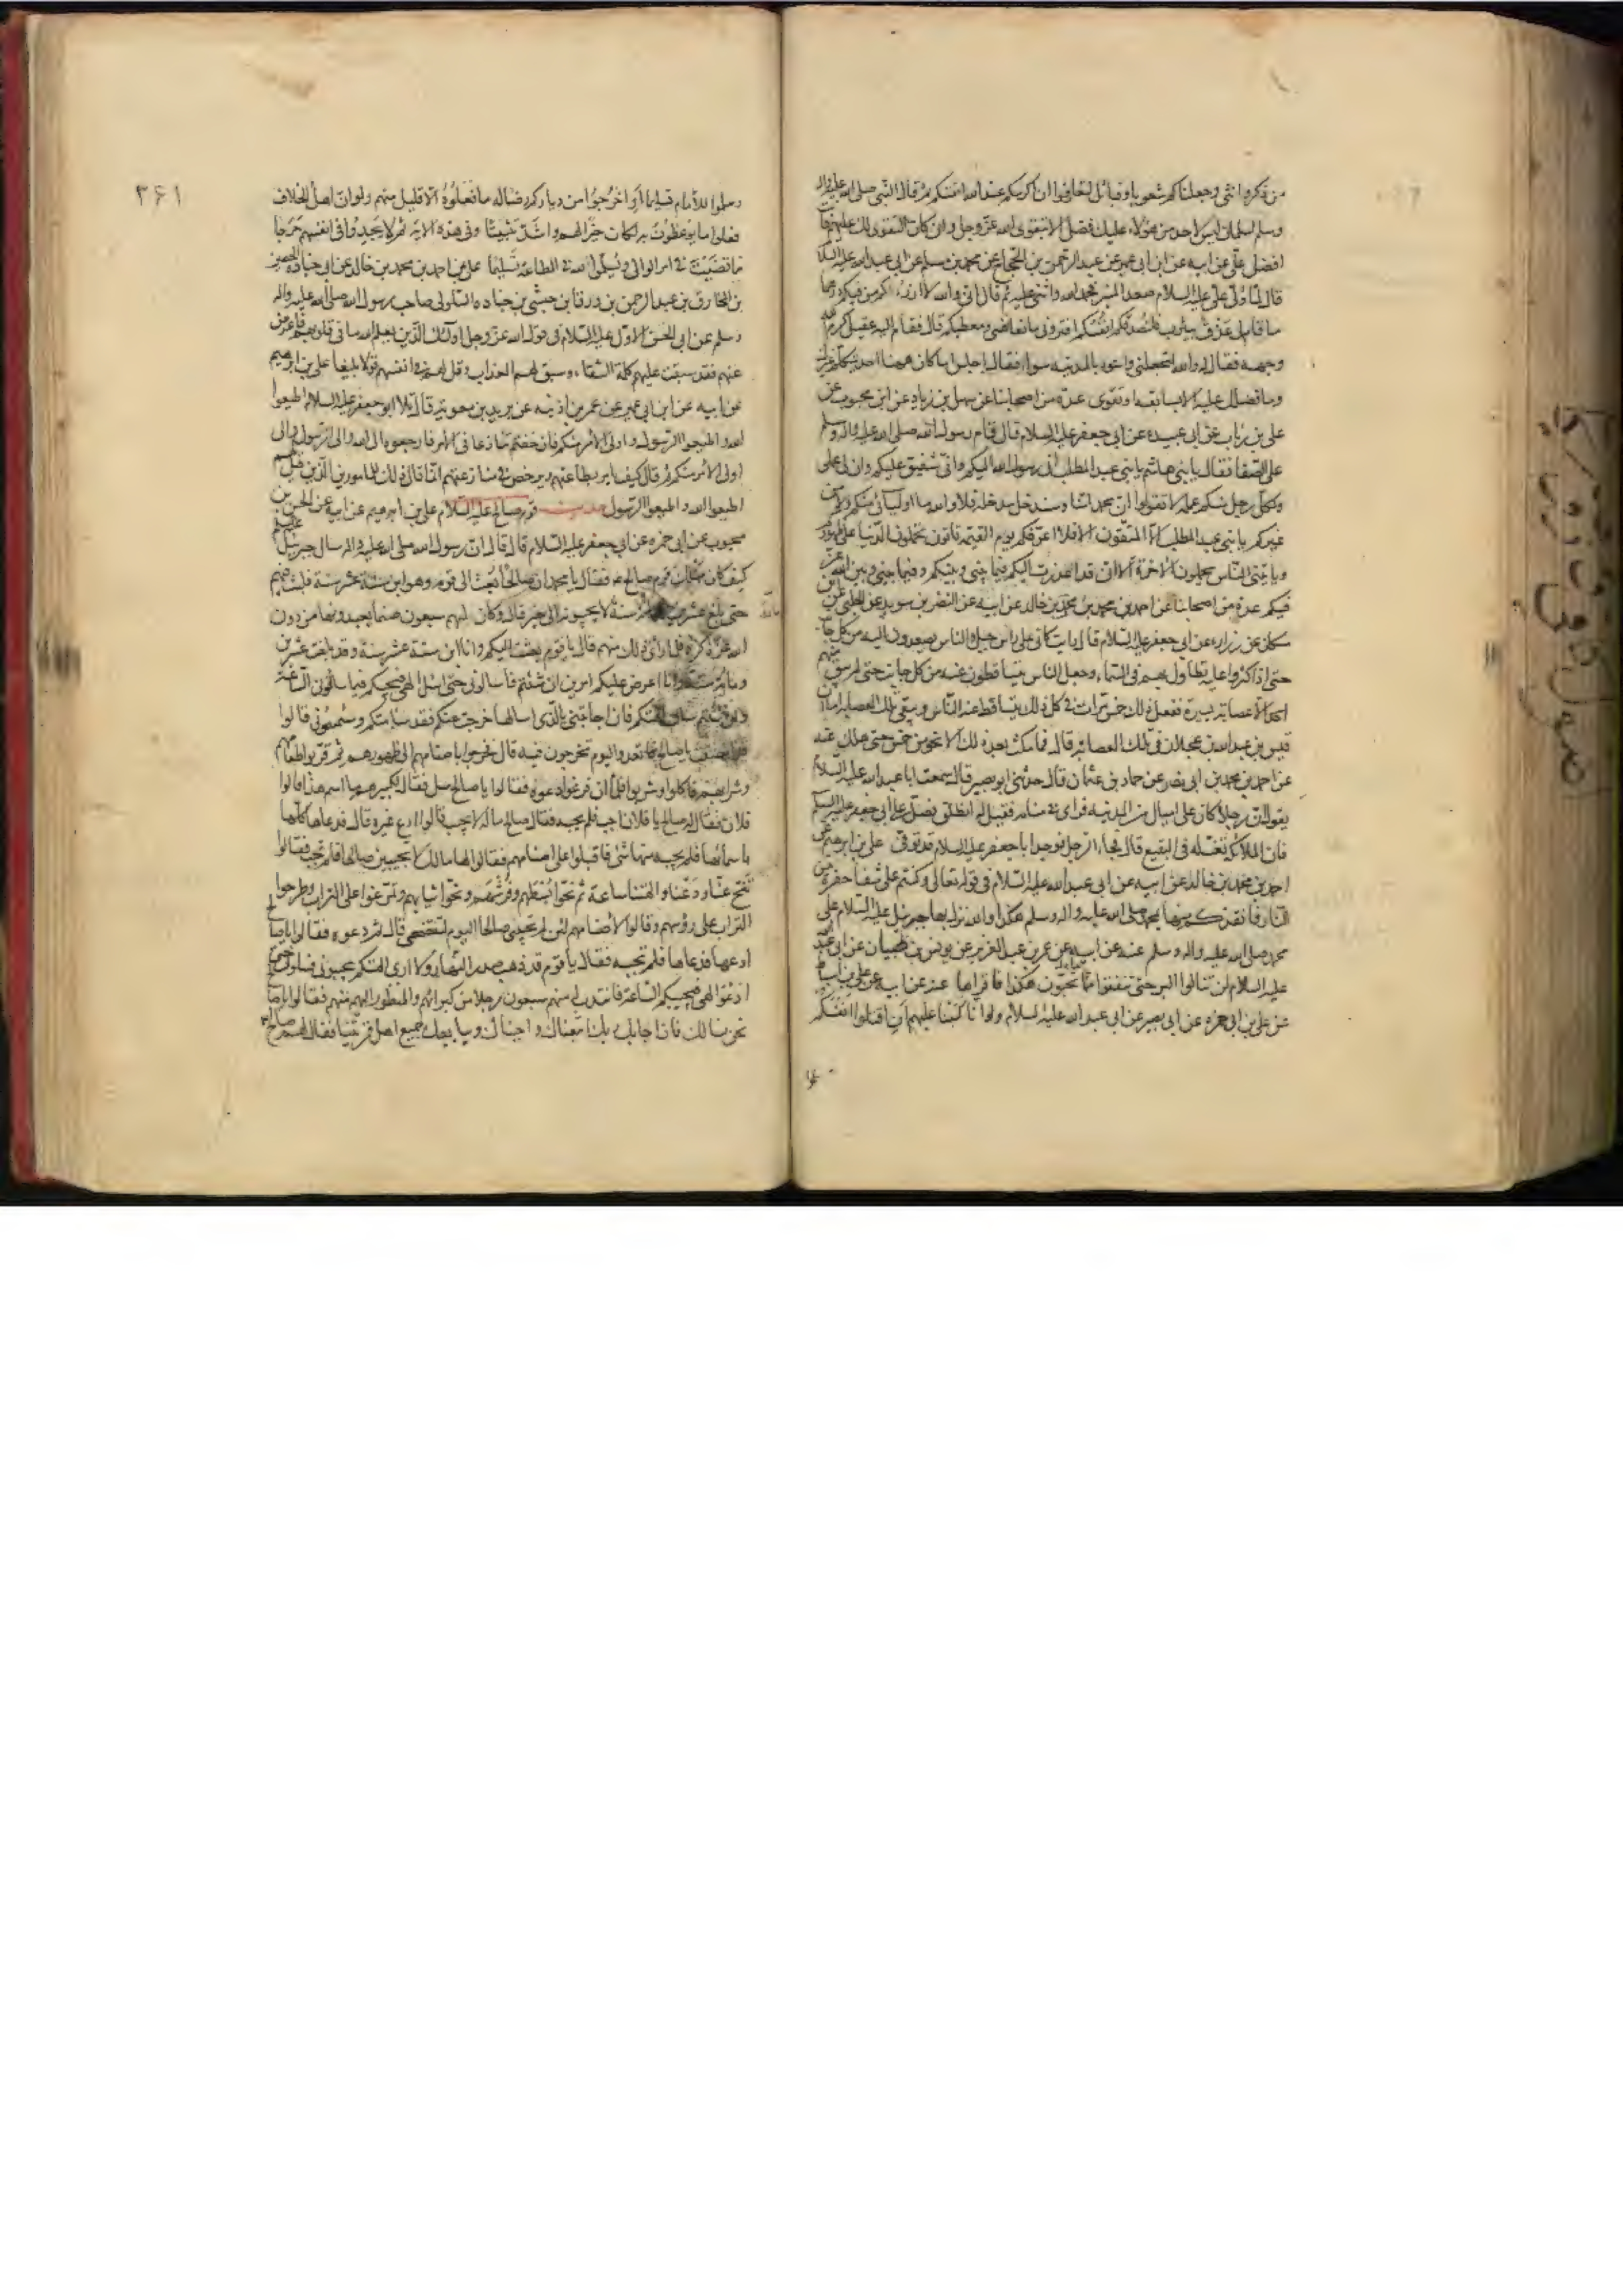 من ذكر وانثى وجعلناكم شعوبا وقبائل لتعارفوا ان اكرمكم عند الله اتقيكم ثم قال النبي صلى الله عليه واله
وسلم لسلمان ليس لاحد من هؤلاء عليك فضل الا بتقوى الله عز وجل وان كان التقوى لك عليهم فانت
افضل علي عن ابيه عن ابن ابي عمير عن عبد الرحمن بن الحجاج عن محمد بن مسلم عن ابي عبد الله عليه السلام
قال لما ولى علي عليه السلام صعد المنبر فحمد الله واثنى عليه ثم قال اني والله لا ارزؤكم من فيئكم درهما
ما قام لي عذق بيثرب فلتصدقكم انفسكم افتروني مانعا نفسي ومعطيكم قال فقام اليه عقيل كرم الله
وجهه فقال له والله لتجعلني واسود بالمدينة سواء فقال اجلس اما كان ههنا احد يتكلم غيرك
وما فضلك عليه الا بسابقة او بتقوى عدة من اصحابنا عن سهل بن زياد عن ابن محبوب عن
علي بن رئاب عن ابي عبيدة عن ابي جعفر عليه السلام قال قام رسول الله صلى الله عليه واله وسلم
على الصفا فقال يا بني هاشم يا بني عبد المطلب اني رسول الله اليكم واني شفيق عليكم وان لي عملي
ولكل رجل منكم عمله لا تقولوا ان محمدا منا وسندخل مدخله فلا والله ما اوليائي منكم ولا من
غيركم يا بني عبد المطلب الا المتقون الا فلا اعرفكم يوم القيمة تاتون تحملون الدنيا على ظهوركم
وياتي الناس يحملون الاخرة الا اني قد اعذرت اليكم فيما بيني وبينكم وفيما بيني وبين الله عز
فيكم عدة من اصحابنا عن احمد بن محمد بن خالد عن ابيه عن النضر بن سويد عن الحلبي عن ابن
مسكان عن زرارة عن ابي جعفر عليه السلام قال رايت كاني على راس جبل والناس يصعدون اليه من كل جانب
حتى اذا كثروا عليه تطاول بهم في السماء وجعل الناس يتساقطون عنه من كل جانب حتى لم يبق منهم
احد الا عصابة يسيرة ففعل ذلك خمس مرات في كل ذلك يتساقط عنه الناس ويبقى تلك العصابة اما ان
قيس بن عبد الله بن عجلان في تلك العصابة قال فما مكث بعد ذلك الا نحو من خمس حتى هلك عنه
عن احمد بن محمد بن ابي نصر عن حماد بن عثمان قال حدثني ابو بصير قال سمعت ابا عبد الله عليه السلام
يقول ان رجلا كان على اميال من المدينة فراى في منامه فقيل له انطلق فصل على ابي جعفر عليه السلام
فان الملائكة تغسله في البقيع قال فجاء الرجل فوجد ابا جعفر عليه السلام قد توفي علي بن ابرهيم عن
احمد بن محمد بن خالد عن ابيه عن ابي عبد الله عليه السلام في قوله تعالى وكنتم على شفا حفرة من
النار فانقذكم منها بمحمد صلى الله عليه واله وسلم هكذا والله نزل بها جبرئيل عليه السلام على
محمد صلى الله عليه واله وسلم عنه عن ابيه عن عمر بن عبد العزيز عن يونس بن ظبيان عن ابي عبد الله
عليه السلام لن تنالوا البر حتى تنفقوا مما تحبون هكذا فاقراها عنه عن ابيه عن علي بن اسباط
عن علي بن ابي حمزة عن ابي بصير عن ابي عبد الله عليه السلام ولو انا كتبنا عليهم ان اقتلوا انفسكم
٣۶١
وسلموا للامام تسليما او اخرجوا من دياركم رضا له ما فعلوه الا قليل منهم ولو ان اهل الخلاف
فعلوا ما يوعظون به لكان خيرا لهم واشد تثبيتا وفي هذه الاية ثم لا يجدوا في انفسهم حرجا
مما قضيت في امر الوالي ويسلموا لله في الطاعة تسليما علي عن احمد بن محمد بن خالد عن ابي جنادة الحصين
بن المخارق بن عبد الرحمن بن ورقا بن حبشي بن جنادة السلولي صاحب رسول الله صلى الله عليه واله
وسلم عن ابي الحسن الاول عليه السلام في قول الله عز وجل اولئك الذين يعلم الله ما في قلوبهم فاعرض
عنهم فقد سبقت عليهم كلمة الشقاء وسبق لهم العذاب وقل لهم في انفسهم قولا بليغا علي بن ابرهيم
عن ابيه عن ابن ابي عمير عن عمر بن اذينة عن بريد بن معوية قال تلا ابو جعفر عليه السلام اطيعوا
الله واطيعوا الرسول واولي الامر منكم فان خفتم تنازعا في الامر فارجعوه الى الله والى الرسول والى
اولي الامر منكم ثم قال كيف يامر بطاعتهم ويرخص في منازعتهم انما قال ذلك للمامورين الذين قيل لهم
اطيعوا الله واطيعوا الرسول حديث قوم صالح عليه السلام علي بن ابرهيم عن ابيه عن الحسن بن
محبوب عن ابي حمزة عن ابي جعفر عليه السلام قال قال ان رسول الله صلى الله عليه واله سال جبرئيل
كيف كان مهلك قوم صالح فقال يا محمد ان صالحا بعث الى قومه وهو ابن ستة عشر سنة فلبث فيهم
حتى بلغ عشرين سنة لا يجيبونه الى خير قال وكان لهم سبعون صنما يعبدونها من دون
الله عز ذكره فلما راى ذلك منهم قال يا قوم بعثت اليكم وانا ابن ستة عشر سنة وقد بلغت عشرين
ومائة سنة وانا اعرض عليكم امرين ان شئتم فاسالوني حتى اسال الهي فيجيبكم فيما سالتموني الساعة
وان شئتم سالت الهتكم فان اجابتني بالذي اسالها خرجت عنكم فقد سئمتكم وسئمتموني قالوا
قد انصفت يا صالح فاتعدوا ليوم تخرجون فيه قال فخرجوا باصنامهم الى ظهورهم ثم قربوا طعامهم
وشرابهم فاكلوا وشربوا فلما ان فرغوا دعوه فقالوا يا صالح سل فقال لكبيرهم ما اسم هذا قالوا
فلان فقال له صالح يا فلان اجب فلم يجبه فقال صالح ما له لا يجيب قالوا ادع غيره قال فدعاها كلها
باسمائها فلم يجبه منها شئ فاقبلوا على اصنامهم فقالوا لها ما لك لا تجيبين صالحا فلم تجب فقالوا
تنح عنا ودعنا والهتنا ساعة ثم نحوا بسطهم وفرشهم ونحوا ثيابهم وتمرغوا على التراب وطرحوا
التراب على رؤسهم وقالوا لاصنامهم لئن لم تجيبي صالحا اليوم لتفضحن قال ثم دعوه فقالوا يا صالح
ادعها فدعاها فلم تجبه فقال يا قوم قد ذهب صدر النهار ولا ارى الهتكم تجيبوني فسلوني حتى
ادعو الهي فيجيبكم الساعة فانتدب له منهم سبعون رجلا من كبرائهم والمنظور اليهم منهم فقالوا يا صالح
نحن نسالك فان اجابك ربك اتبعناك واجبناك ويبايعك جميع اهل قريتنا فقال لهم صالح